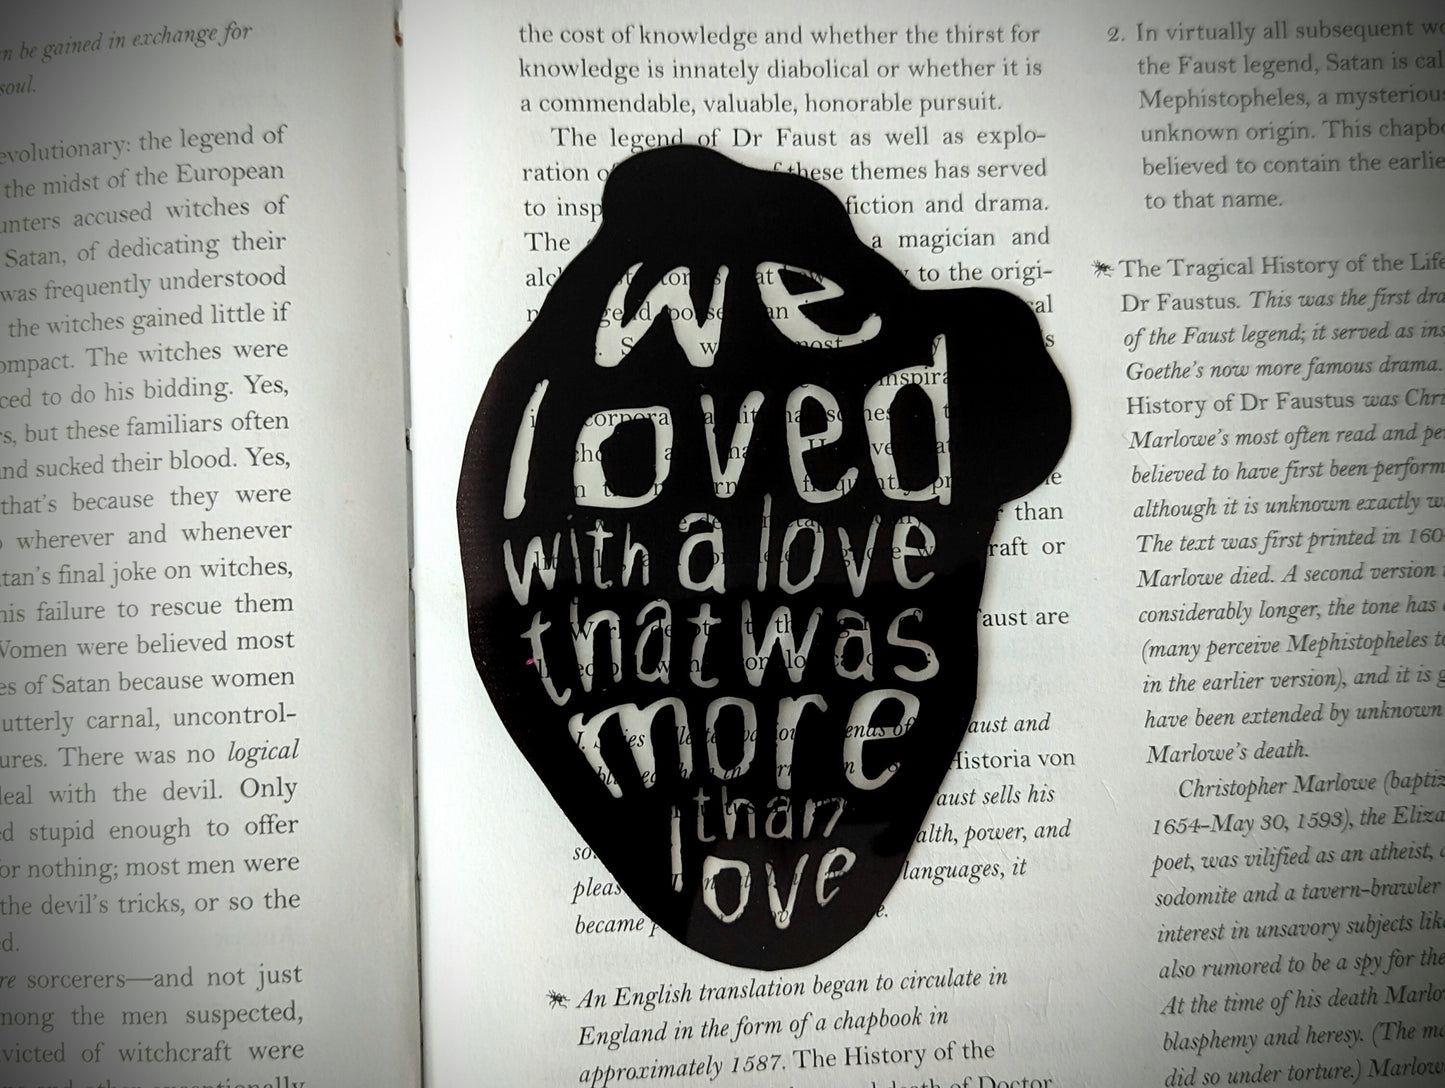 n be gained in exchange for
soul.
evolutionary: the legend of
the midst of the European
unters accused witches of
Satan, of dedicating their
was frequently understood
the witches gained little if
ompact. The witches were
ced to do his bidding. Yes,
s, but these familiars often
nd sucked their blood. Yes,
that's because they were
wherever and whenever
tan's final joke on witches,
his failure to rescue them
Women were believed most
es of Satan because women
utterly carnal, uncontrol-
ures. There was no logical
deal with the devil. Only
d stupid enough to offer
for nothing; most men were
the devil's tricks, or so the
d.
re sorcerers—and not just
mong the men suspected,
victed of witchcraft were
the cost of knowledge and whether the thirst for
knowledge is innately diabolical or whether it is
a commendable, valuable, honorable pursuit.
The legend of Dr Faust as well as explo-
ration of these themes has served
to insp fiction and drama.
The a magician and
to the origi-
we
loved
with a love
that was
more
than
love
than
raft or
Faust are
Faust and
Historia von
aust sells his
alth, power, and
languages, it
pleas
became
An English translation began to circulate in
England in the form of a chapbook in
approximately 1587. The History of the
death of Doctor
2. In virtually all subsequent
the Faust legend, Satan is cal
Mephistopheles, a mysteriou
unknown origin. This chapb
believed to contain the earlie
to that name.
The Tragical History of the Life
Dr Faustus. This was the first dra
of the Faust legend; it served as ins
Goethe's now more famous drama.
History of Dr Faustus was Chri
Marlowe's most often read and pe
believed to have first been perform
although it is unknown exactly w
The text was first printed in 160
Marlowe died. A second version
considerably longer, the tone has
(many perceive Mephistopheles t
in the earlier version), and it is g
have been extended by unknown
Marlowe's death.
Christopher Marlowe (baptiz
1654–May 30, 1593), the Eliza
poet, was vilified as an atheist,
sodomite and a tavern-brawler
interest in unsavory subjects lik
also rumored to be a spy for the
At the time of his death Marlo
blasphemy and heresy. (The m
did so under torture.) Marlow